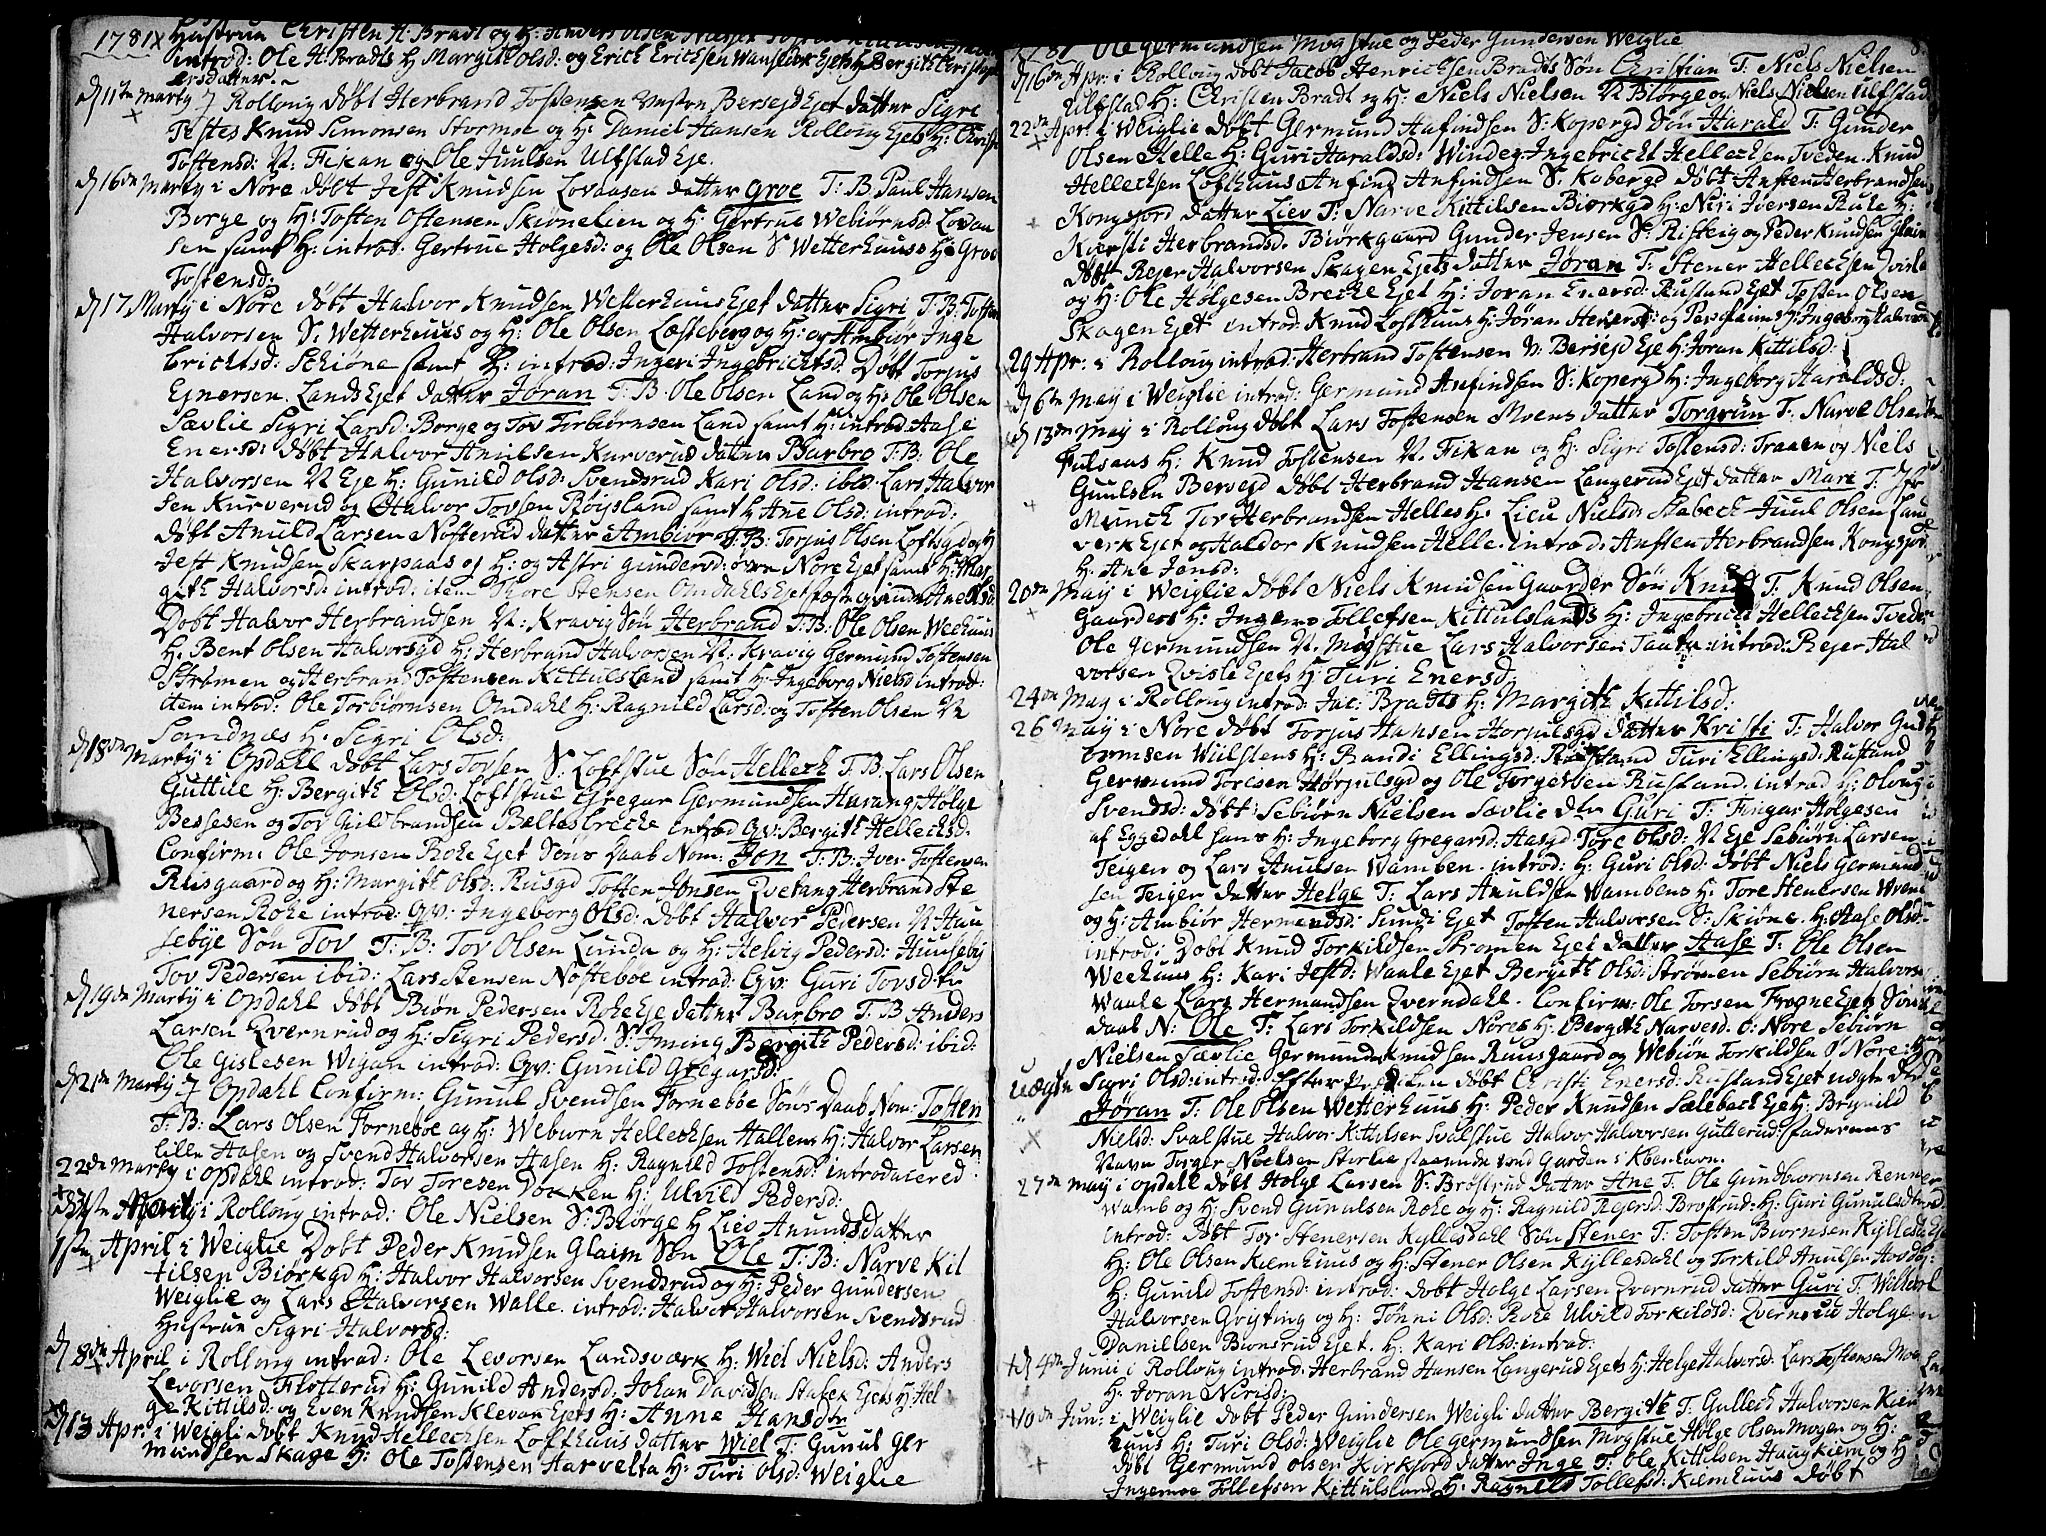 1781
Hustrue Christen H. Bradt og H: Anders Olsen
introd: Ole H. Bradts H Margith Olsd: og Erich Erichsen Wanslivk Ejets H Bergith Christoph
ersdatter.
d 11te Marty J Rolloug Døbt Herbrand Tostensen Bersejd Ejet datter Sigri
Testes Knud Simonsen Stormoe og H: Daniel Hansen Rolloug Ejets H: Christi
Tostensd: N. Fikan og Ole Juulsen Ulfstad Eje.
d 16de Marty i Nore Døbt Jest Knudsen Lovaasen datter Groe T: B: Paul Hansen
Borge og H: Tosten Ostensen Skiønelien og H: Gertrue Webiørnsd: Lovaa
sen samt H: introd: Gertrue Holgesd: og Ole Olsen S: Wetterhuuss H: Groe
Tostensd:
d 17 Marty i Nore Døbt Halvor Knudsen Wetterhuus Ejet datter Sigri T: B: Tosten
Halvorsen S: Wetterhuus og H: Ole Olsen Læsteberg og H: og Ambiør Inge
brichtsd: Schiøne samt H: introd: Ingeri Ingebrichtsd: Døbt Torjus
Ejnersen Lands Ejet datter Jøran T: B: Ole Olsen Land og H: Ole Olsen
Sævlie Sigri Larsd: Borge og Tov Torbiørnsen Land samt H: introd: Aase
Enersd: Døbt Halvor Anulsen Kurverud datter Barbro T: B: Ole
Halvorsen N Eje H: Gunild Olsd: Svendsrud Kari Olsd: ibid: Lars Halvor
sen Kurverud og Halvor Tovsen Røigsland samt H Ane Olsd: introd:
Døbt Anuld Larsen Nøsterud datter Ambiør T: B: Torjus Olsen Loftsgd og H
Jest Knudsen Skarpaas og H: og Astri Gundersd: øvre Nore Ejet samt H: Mar
gith Halvorsd: introd: item Thore Stensen Omdahls Ejet Ane Olsd:
Døbt Halvor Herbrandsen N: Kravig Søn Herbrand T: B: Ole Olsen Weehuus
H: Bent Olsen Halvorsgd H: Herbrand Halvorsen N: Kravig Germund Tostensen
Strømen og Herbran Tostensen Kittulsland samt H: Ingeborg Nielsd introd:
item introd: Ole Torbiørnsen Omdahl H: Ragnild Larsd: og Tosten Olsen N
Sandnæs H: Sigri Olsd:
d 18de Marty i Opdahl Døbt Lars Tovsen S: Loftstue Søn Hellech T: B: Lars Olsen
Guttue H: Bergith Olsd: Loftstue Gregar Germundsen Harang Holge
Bessesen og Tov Gulbrandsen Bæltesbreche introd Qv: Bergith Hellechsd:
Confirm: Ole Jonsen Roke Ejet Søns Daab Nom: Jon T: B: Iver Tostensen
Ruusgaard og H: Margith Olsd: Rusgd Tosten Jonsen Qvetang Herbrand Ste
nersen Roke introd: Qv: Ingeborg Olsd: Døbt Halvor Pedersen N Huu
sebye Søn Tov T: B: Tov Olsen Lunda og H: Helvig Pedersd: Huusebÿ
Tov Pedersen ibid: Lars Stensen Nøstebøe introd: Qv: Guri Tovsd:
d 19de Marty i Opdahl Døbt Biøn Pedersen Roke Eje datter Barbro T. B Anders
Larsen Qvernrud og H: Sigri Pedersd. S: Iming Bergith Pedersd: ibid:
Ole Gislesen Wigan introd: Qv: Gunild Gregarsd:
d 21de Marty J Opdahl Confirm: Gunul Svendsen Fornebøe Søns Daab Nom: Tosten
T: B: Lars Olsen Fornebøe og H: Weburn Hellechsen Hallens H: Halvor Larsen
lille Hasen og Svend Halvorsen Aasen H: Ragnild Tostensd: introducered
22de Marty i Opdahl introd: Tov Toresen Dokken H: Ulvild Pedersd:
Marty i Rolloug introd: Ole Nielsen S: Biørge H Liev Anundsdatter
1ste April i Weiglie Døbt Peder Knudsen Glaim Søn Ole T: B: Narve Kit
tilsen Biørkgd H: Halvor Halvorsen Svendsrud og H: Peder Gundersen
Weiglie og Lars Halvorsen Walle. introd: Halvor Halvorsen Svendsrud
Hustrue Sigri Halvorsd:
d 8de April i Rolloug introd: Ole Levorsen Landsværk H: Wiel Nielsd: Anders
Levorsen Flotterud H: Gunild Andersd: Johan Davidsen Stabek Ejets H: Hel
ge Kittilsd: og Even Knudsen Klevan Ejets H: Anne Hansdtr
d 13 Apr: i Weigli Døbt Knud Hellechsen Lofthuus datter Wiel T: Gunul Ger
mundsen Skage H: Ole Tostensen Aarvelta H: Turi Olsd: Weiglie
1781 Ole Germundsen Mogstue og Peder Gundersen Weiglie
d 16de Apr: i Rolloug Døbt Jacob Henrichsen Bradts Søn Christian T: Niels Nielsen
Ulfstad H: Christen Bradt og H: Niels Nielsen N Biørge og Niels Nielsen Ulfstad
22de Apr: i Weiglie Døbt Germund Anfindsen S: Kopergd Søn Harald T: Gunder
Olsen Helle H: Guri Haraldsd: Windeg Ingebricht Hellechsen Tveden Knud
Hellechsen Lofthuus Anfind Anfindsen S: Kobergd Døbt Ansten Herbrandsen
Kongsjord datter Liev T: Narve Kittilsen Biørkgd H: Niri Iversen Ruke H:
Kiersti Herbrandsd. Biørkgaard Gunder Jensen S: Risteig og Peder Knudsen Glaim
Døbt Rejer Halvorsen Skagen Ejets datter Jøran T: Stener Hellechsen Qvisle
og H: Ole Hølgesen Breche Ejet H: Joran Enersd: Rustand Ejet Tosten Olsen
Skagen Ejet introd: Knud Lofthuus H: Jøran Henersd: og Peder Glaim H: Ingeborg Halvorsd
29 Apr: i Rolloug introd: Herbrand Tostensen N: Bersejd Eje H: Joran Kittilsd:
d 6te May i Weiglie introd: Germund Anfindsen S: Kopergd H: Ingeborg Haraldsd:
d 13de May i Rolloug Døbt Lars Tostensen Moens datter Torgrun T: Narve Olsen
Fulsaas H: Knud Tostensen N. Fikan og H: Sigri Tostensd: Traaen og Niels
Guulsen Bersegd Døbt Herbrand Hansen Langerud Ejet datter Mari T:
Munch Tov Herbrandsen Helles H: Lieu Nielsd: Stabech Juul Olsen Land
verk Ejet og Haldor Knudsen Helle. introd: Ansten Herbrandsen Kongsjor
H: Ane Jensd:
20de May i Weiglie Døbt Niels Knudsen Gaarder Søn Knud T: Knud Olsen
Gaarders H: Ingemo Tollefsen Kittulslands H: Ingebricht Hellechsen Tvede
Ole Germundsen N. Mogstue Lars Halvorsen Taata introd: Rejer Hal
vorsen Qvisle Ejets H: Turi Enersd:
24de May i Rolloug introd: Jac: Bradts H: Margith Kittilsd:
26 May i Nore Døbt Torjus Hansen Horjulsgd datter Kristi T: Halvor Gud
bornsen Wiilstens H: Randi Ellingsd: Rustand Turi Ellingsd: Rustand
Germund Toresen Hørjulsgd og Ole Torgersen Rustand. introd H: Oloug
Svendsd: Døbt: Sebiørn Nielsen Sævlie dtr Guri T: Fingar Holgesen
af Eggedahl hans H: Ingeborg Gregarsd: Aasgd Tore Olsd: N Eje Sebiørn Larsen
Teigen og Lars Anulsen Wamben. introd: H: Guri Olsd: Døbt Niels Germund
sen Teigen datter Helge T: Lars Anuldsen Wambens H: Tore Stenersen Wrene
og H: Ambiør Hermandsd: Sundi Ejet Tosten Halvorsen S: Skiøne. H: Aase Olsd:
introd: Døbt Knud Torkildsen Strømen Ejet datter Aase T: Ole Olsen
Weehuus H: Kari Jestd: Waale Ejet Bergith Olsd: Strømen Sebiørn Halvors
Waale Lars Hermandsen Qverndahl. Confirm: Ole Torsen Frogne Ejets Søns
Daab N: Ole T: Lars Torkildsen Nores H: Bergith Narvesd. Ø: Nore Sebiørn
Nielsen Sævlie Germund Knudsen Ruusgaard og Webiøn Torkildsen Ø Nore:
uægte Sigri Olsd: introd: Efter Prediken Døbt Christi Enersd: Rustand Ejet uægte Dtr
Jøran T: Ole Olsen Wetterhuus H: Peder Knudsen Sælebach Eje H: Brynild
Nielsd: Svalstue Halvor Kittilsen Svalstue Halvor Halvorsen Gutterud: Faderens
Navn Torger Nielsen Storlie staaende ved Garden i Kbenhavn.
27de May i Opdahl Døbt Holge Larsen S: Brøstrud datter Ane T. Ole Gundbiornsen Renne
Wamb og H: Svend Gunulsen Roke og H: Ragnild Rejersd: Brostrud: H: Guri Gunulsd
introd: Døbt Tov Stenersen Kyllesdahl Søn Stener T: Tosten Biornsen Kyllesd: Eje
H: Ole Olsen Kiemhuus og H: Stener Olsen Kyllesdahl og Torkild Anulsen Hovde
H: Gunild Tostensd: introd: Døbt Holge Larsen Qvernrud datter Guri T:
Halvorsen Qvisting og H: Tønni Olsd: Roke Ulvild Torkildsd: Qvernrud Holge
Danielsen Bionsrud Ejet. H: Kari Olsd: introd:
d 4de Junii i Rolloug introd: Herbrand Hansen Langerud Ejets H: Helge Halvorsd: Lars Tostensen Moe
H: Joran Nirisd:
10de Jun: i Weiglie Døbt Peder Gundersen Weigli datter Bergith T: Gullech Halvorsen Kiem
huus H: Turi Olsd: Weiglie Ole Germundsen Mogstue Holge Olsen Mogen og H:
Døbt Germund Olsen Kirkjord datter Inge T: Ole Kittilsen Haugkiern og H
Ingemoe Tollefsen Kittulsland H: Ragnild Tollefsd: Kiemhuus Døbt